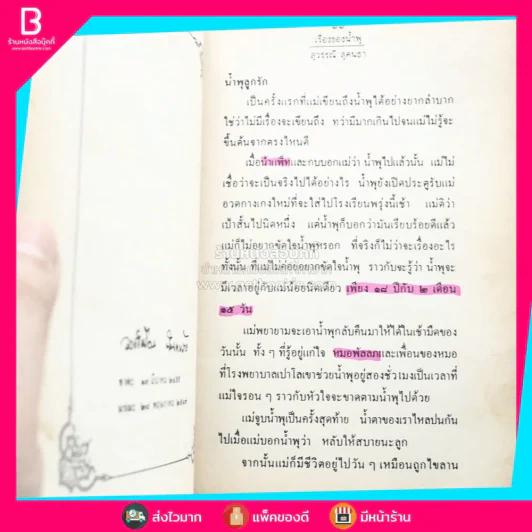 B
ร้านหนังสือบุ๊กกี้
เรื่องของน้ำพุ
สุวรรณี สุคนธา
น้ำพุลูกรัก
เป็นครั้งแรกที่แม่เขียนถึงน้ำพุได้อย่างยากลำบาก
ใช่ว่าไม่มีเรื่องจะเขียนถึง ทว่ามีมากเกินไปจนแม่ไม่รู้จะ
ขึ้นต้นจากตรงไหนดี
เมื่อน้าแพ็ทและกบบอกแม่ว่า น้ำพุไปแล้วนั้น แม่ไม่
เชื่อว่าจะเป็นจริงไปได้อย่างไร น้ำพุยังเปิดประตูรับแม่
อวดกางเกงใหม่ที่จะใส่ไปโรงเรียนพรุ่งนี้เช้า แม่ติว่า
เป้าสั้นไปนิดหนึ่ง แต่น้ำพุก็บอกว่ามันเรียบร้อยดีแล้ว
แม่ก็ไม่อยากขัดใจน้ำพุหรอก ที่จริงก็ไม่ว่าจะเรื่องอะไร
ทั้งนั้น ที่แม่ไม่ค่อยอยากขัดใจน้ำพุ ราวกับจะรู้ว่า น้ำพุจะ
มีเวลาอยู่กับแม่น้อยนิดเดียว เพียง ๑๘ ปีกับ ๒ เดือน
๑๕ วัน
แม่พยายามจะเอาน้ำพุกลับคืนมาให้ได้ในเช้ามืดของ
วันนั้น ทั้ง ๆ ที่รู้อยู่แก่ใจ หมอพัลลภและเพื่อนของหมอ
ที่โรงพยาบาลเปาโลเขาช่วยน้ำพุอยู่สองชั่วโมงเป็นเวลาที่
แม่ใจรอน ๆ ราวกับหัวใจจะขาดตามน้ำพุไปด้วย
แม่จูบน้ำพุเป็นครั้งสุดท้าย น้ำตาของเราไหลปนกัน
ไปเมื่อแม่บอกน้ำพุว่า หลับให้สบายนะลูก
จากนั้นแม่ก็มีชีวิตอยู่ไปวัน ๆ เหมือนถูกไขลาน
ส่งไวมาก
แพ็คของดี
มีหน้าร้าน